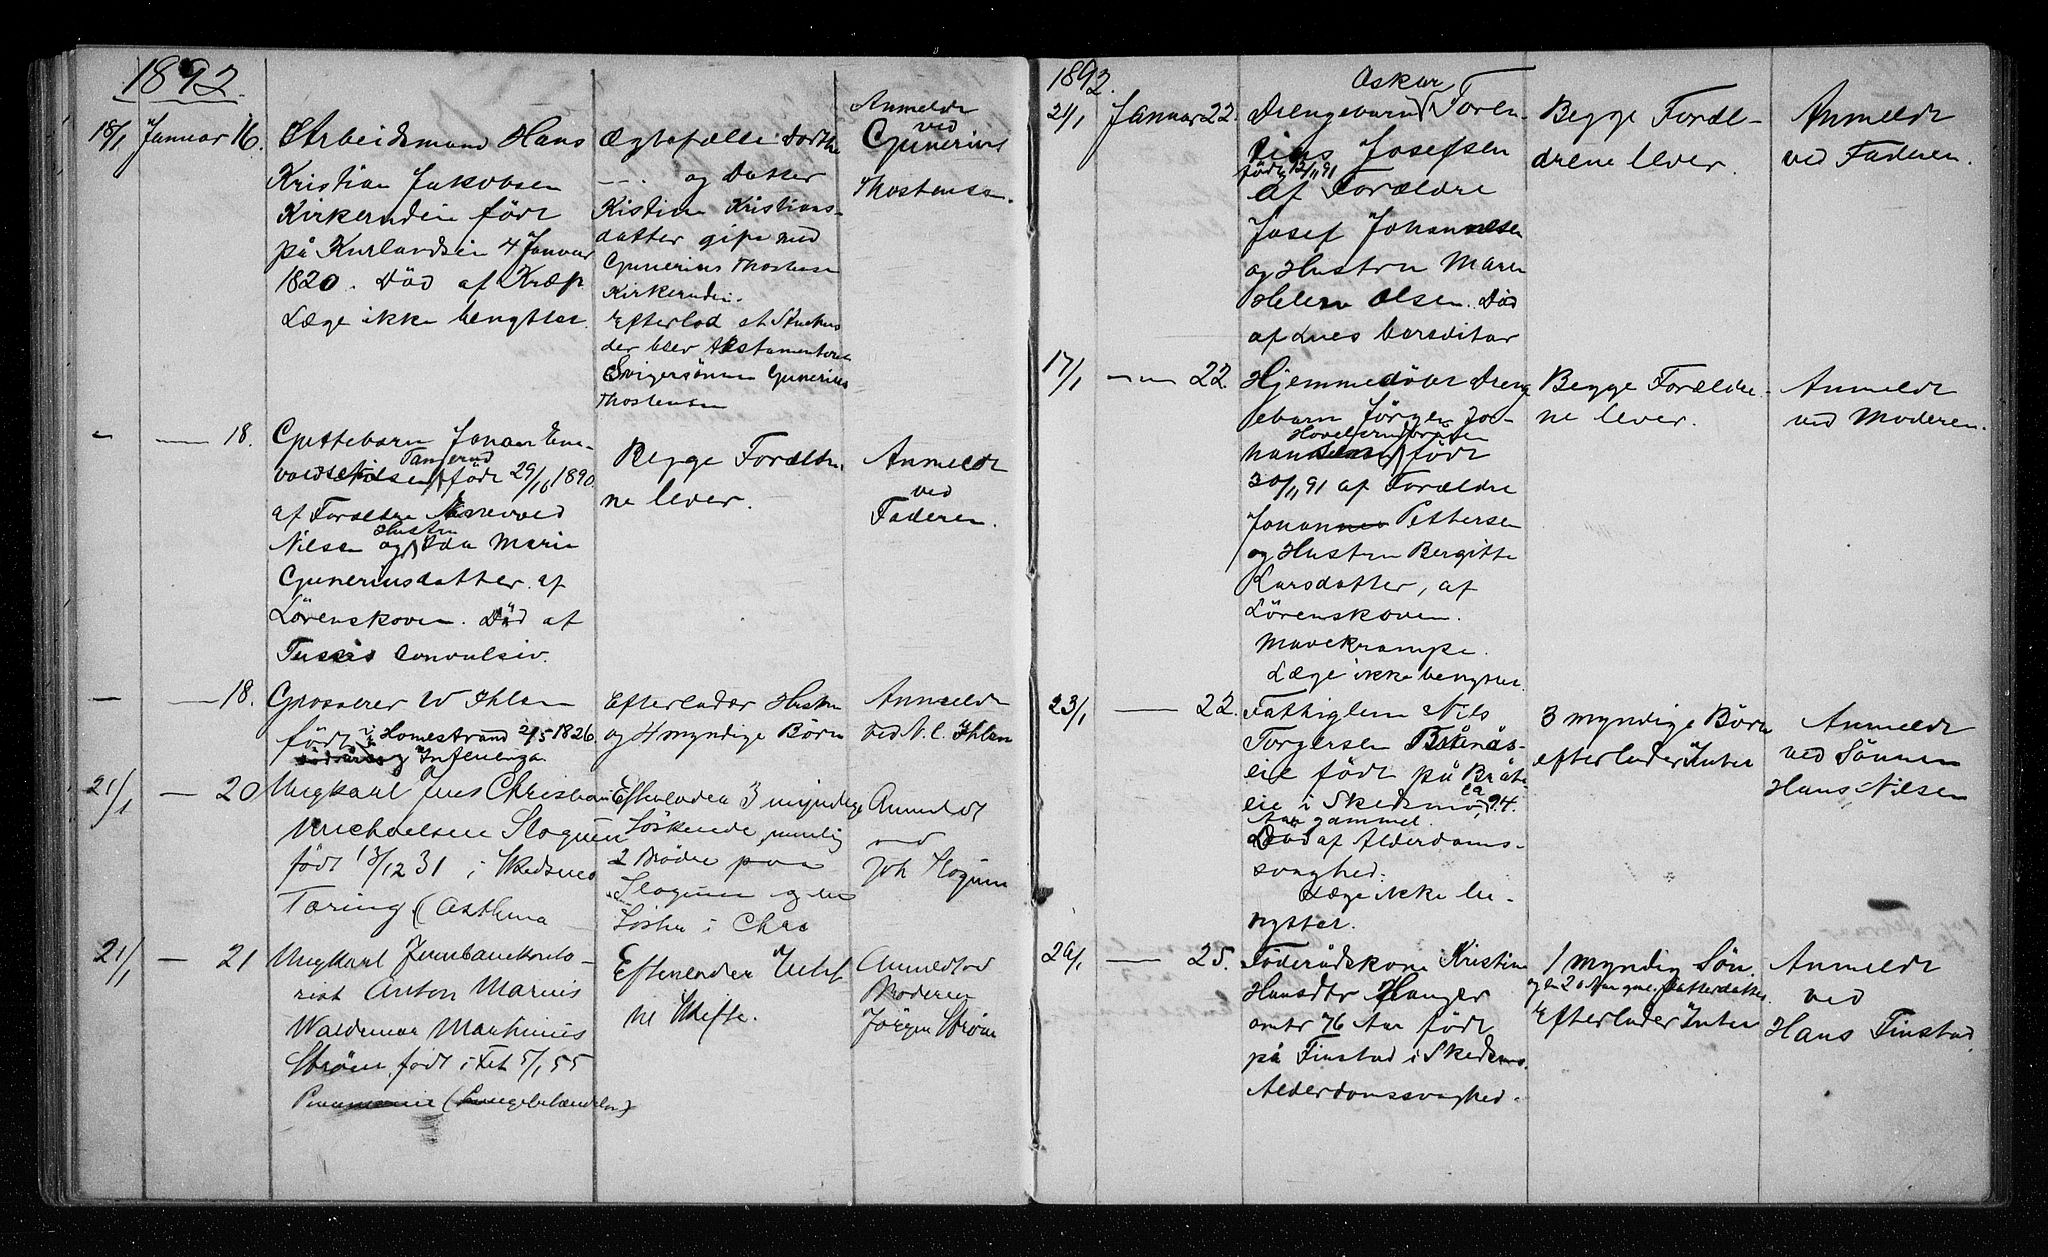 1892.
18/1 Januar 16. Arbeidsmand Hans
Kristian Jakobsen
Kirkerudeie født
på Kurlandseie 4 Januar
1820. Död af Kræft.
Læge ikke benyttet.
Ægtefælle: Dorthe
— . og Datter
Kistine Kristians-
datter gift med
Gunerius Thostensen
Kirkerudei.
Efterlod et
der blev testamenteret
Svigersønnen Gunerius
Thostensen
Anmeldt
ved
Gunerius
Thostensen.
– — 18. Guttebarn Johan Ene-
Tangerud
født 29/10 1890.
af Forældre Enevod
Hustru
Nilsen og Ida Marie
Gunerinsdatter af
Lörenskoven. Död af
Tussis convulsiv.
Begge Forældre-
ne lever.
Anmeldt
ved
Faderen.
— — 18. Grosserer W Ihlen
født i Homestrand 2/5 1826.
Influenza
Efterlader Hustru
og 4 myndige Börn
Anmeldt
ved N. C. Ihlen
21/1 — 20 Ungkarl Jens Christian
Michaelsen Slogum
født 13/12 31 i Skedsmo
Tæring (Asthma
Efterlader 3 myndige
Söskende, nemlig
2 Brödre paa
Slogum og en
Söster i Chra
Anmeldt
ved
Joh Slogum
21/1 — 21 Ungkarl Jernbanekonto-
rist Anton Marius
Waldemar Marthinius
Ström, født i Fet 5/1 55
Efterlader Intet
til Skifte.
Anmeldt ved
Broderen
Jörgen Ström
1892.
Oskar
21/1 Januar 22. Drengebarn Toren-
Josefsen
født 12/11 91
af Forældre
Josef Johannesen
og Hustru Maren
Helene Olsen. Död
af Lues
Begge Foræl-
drene lever.
Anmeldt
ved Faderen.
17/1 — „ — 22. Hjemmedöbt Dreng
ebarn Jörgen Jo-
født
30/11 91 af Forældre
Johannes Pettersen
og Hustru Bergitte
Larsdatter, af
Lörenskoven.
Mavekrampe.
Læge ikke benyttet.
Begge Forældre-
ne lever.
Anmeldt
ved Moderen.
23/1 — 22. Fattiglem Nils
Torgersen Brånås-
eie født på Bråte
ca
eie i Skedsmo, 94.
Aar gammel.
Död af Alderdoms-
svaghed.
Læge ikke be-
nyttet.
3 myndige Börn
efterlader Intet
Anmeldt
ved Sönnen
Hans Nilsen
26/1 — 25. Föderådskone Kristine
Hansdtr Hauger
omtr 76 Aar født
på Finstad i Skedsmo.
Alderdomssvaghed.
1 myndig Sön.
og en 20 Aar gml. Datterdatter.
Efterlader Intet
Anmeldt
ved
Hans Finstad.